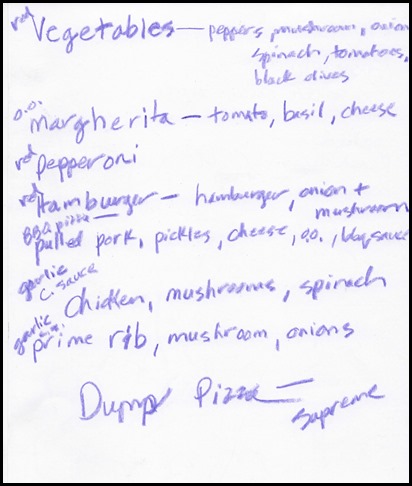 red Vegetables — peppers, mushroom, onion
spinach, tomatoes,
black olives
o.o. margherita — tomato, basil, cheese
red pepperoni
red Hamburger — hamburger, onion +
mushroom
BBQ pizza —
pulled pork, pickles, cheese, o.o., bbq sauce
garlic
c. sauce
Chicken, mushrooms, spinach
garlic
prime rib, mushroom, onions
Dump Pizza —
Supreme